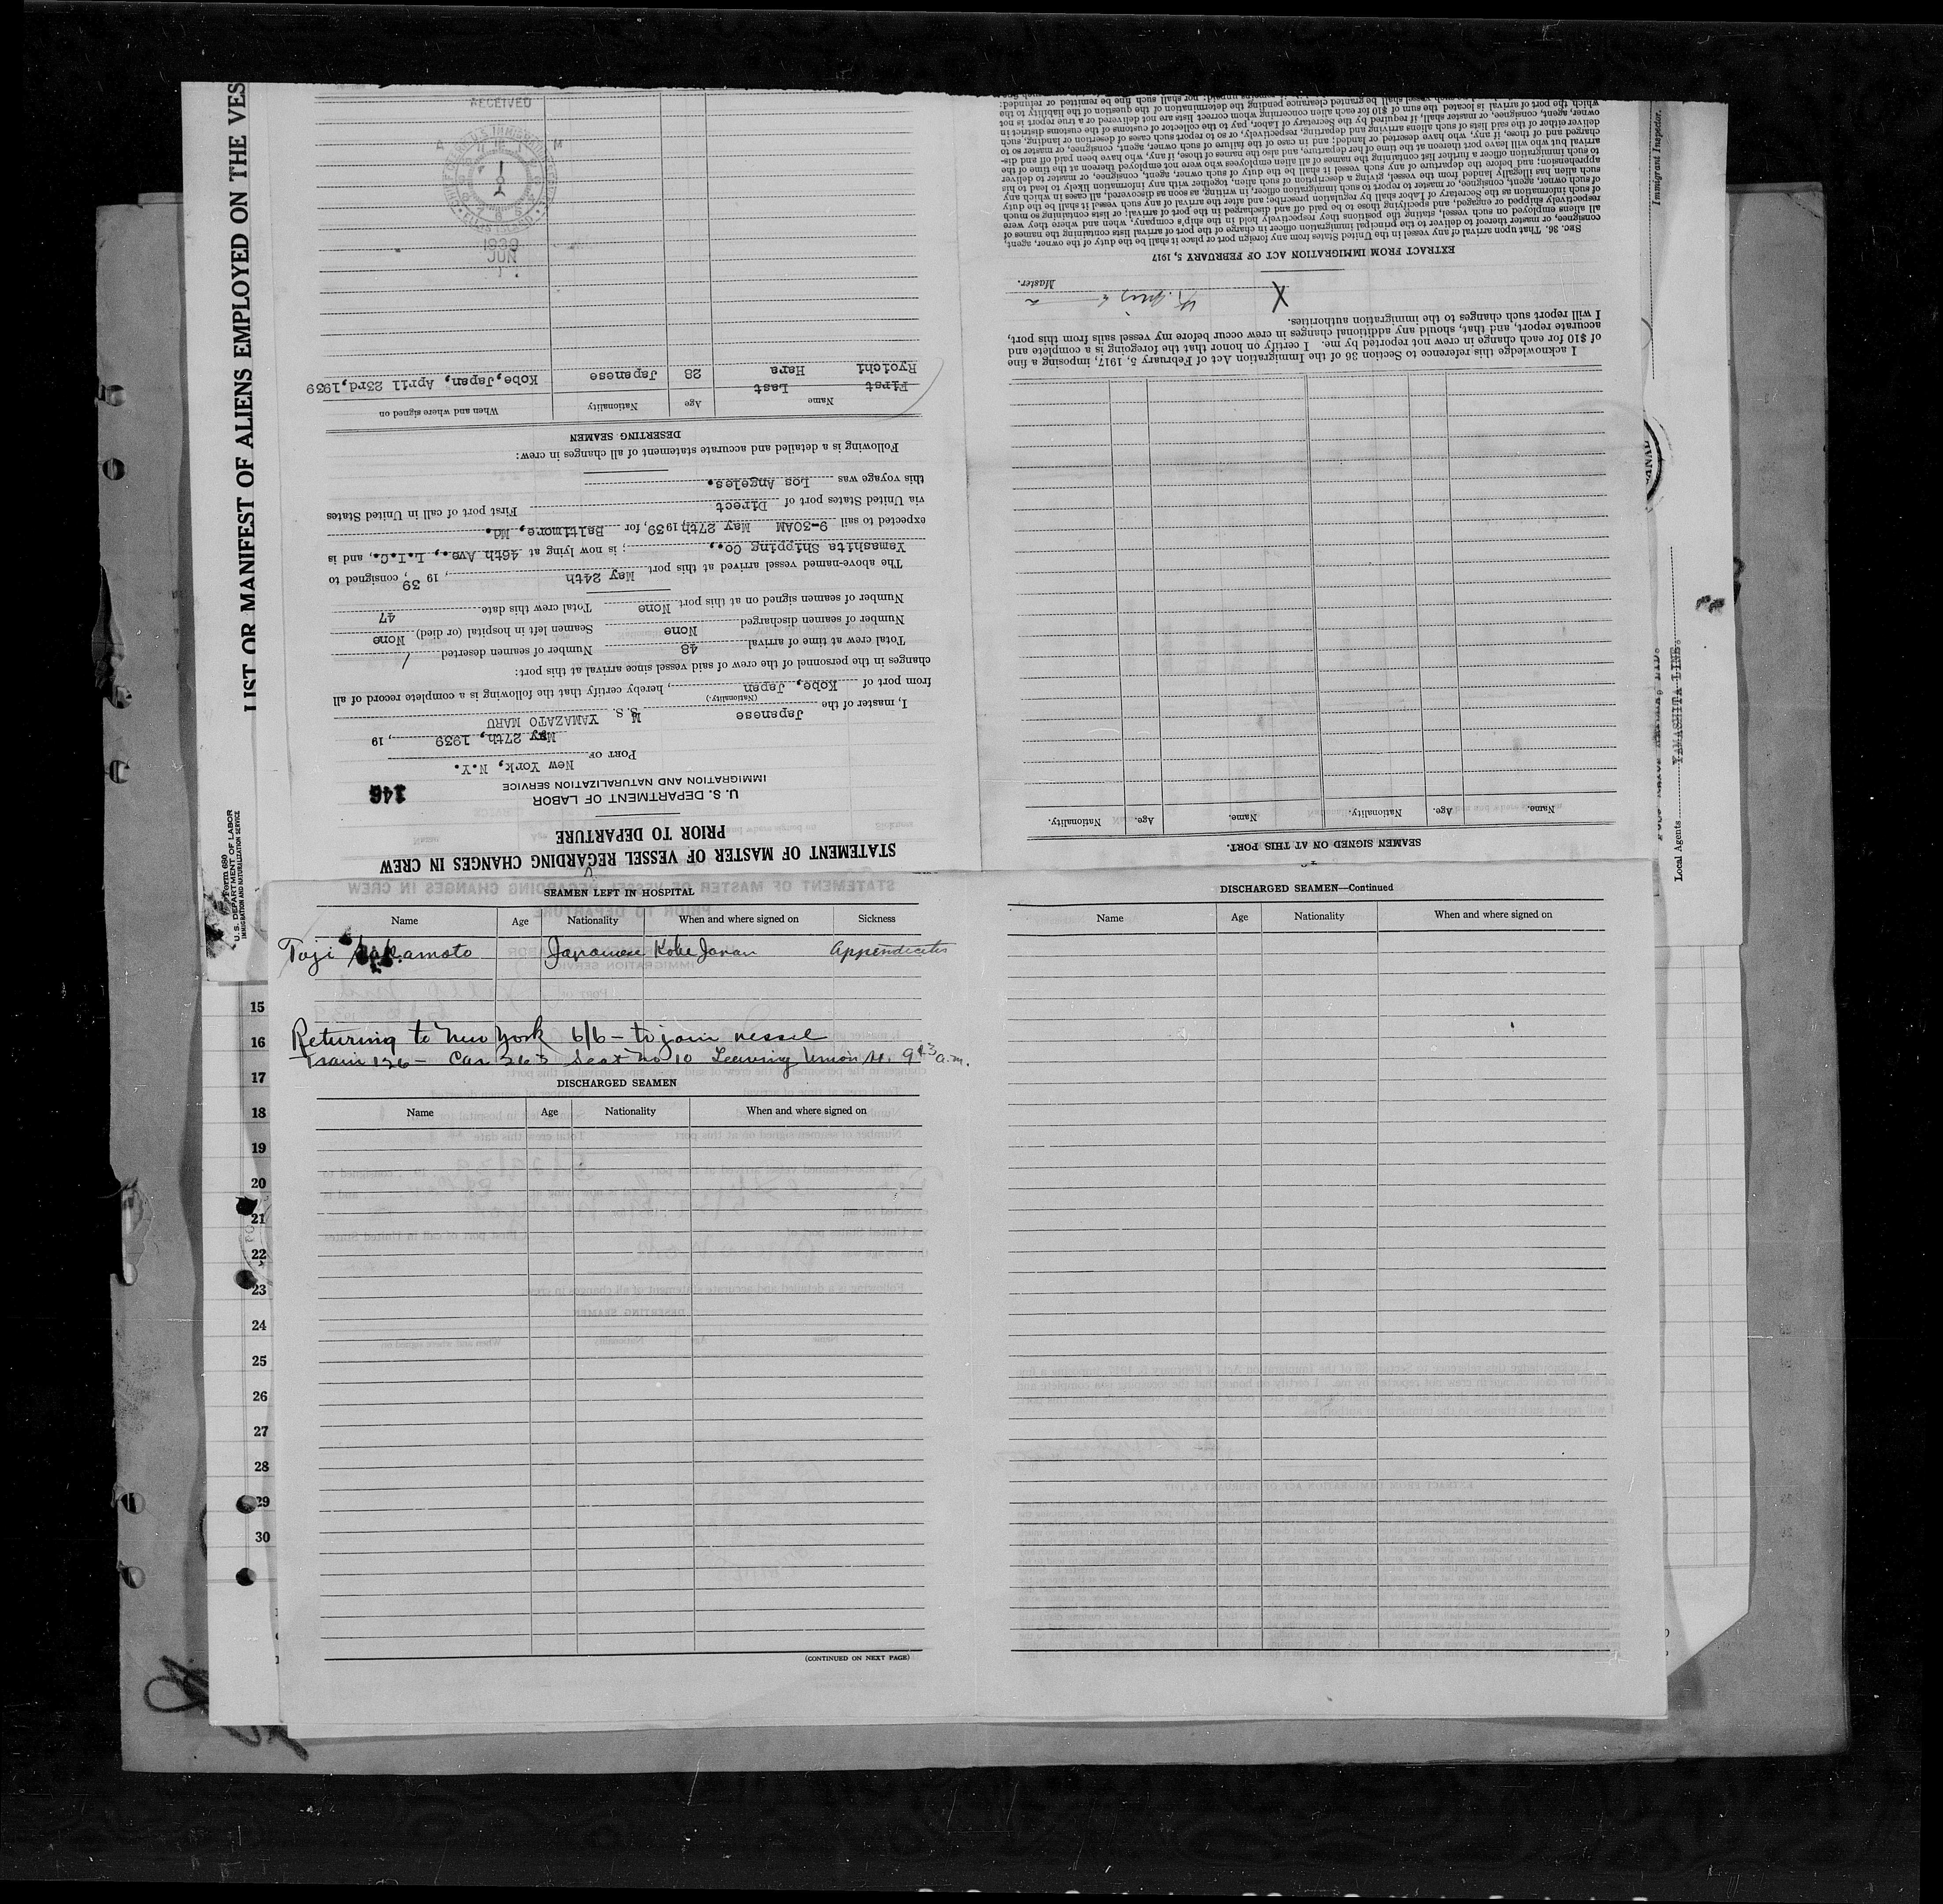 LIST OR MANIFEST OF ALIENS EMPLOYED ON THE VES
Form 680
U. S. DEPARTMENT OF LABOR
IMMIGRATION AND NATURALIZATION SERVICE
STATEMENT OF MASTER OF VESSEL REGARDING CHANGES IN CREW
PRIOR TO DEPARTURE
U. S. DEPARTMENT OF LABOR
IMMIGRATION AND NATURALIZATION SERVICE
146
PORT OF New York, N.Y.
May 27th, 1939, 19
I, master of the Japanese M S. S. YAMAZATO MARU
(Nationality.)
from port of Kobe, Japan, hereby certify that the following is a complete record of all
changes in the personnel of the crew of said vessel since arrival at this port:
Total crew at time of arrival 48 Number of seamen deserted 1
Number of seamen discharged None Seamen left in hospital (or died) None
Number of seamen signed on at this port None Total crew this date 47
The above-named vessel arrived at this port May 24th, 19 39, consigned to
Yamashita Shipping Co.,; is now lying at 46th Ave., L.I.C., and is
expected to sail 9-30AM May 27th 1939, for Baltimore, Md.
via United States port of Direct First port of call in United States
this voyage was Los Angeles.
Following is a detailed and accurate statement of all changes in crew:
DESERTING SEAMEN
Name Age Nationality When and where signed on
First Last
Ryoichi Hara 28 Japanese Kobe, Japan, April 23rd, 1939
JUN
1939
RECEIVED
SEAMEN SIGNED ON AT THIS PORT.
Name. Age. Nationality. Name. Age. Nationality.
I acknowledge this reference to Section 36 of the Immigration Act of February 5, 1917, imposing a fine
of $10 for each change in crew not reported by me. I certify on honor that the foregoing is a complete and
accurate report, and that, should any additional changes in crew occur before my vessel sails from this port,
I will report such changes to the immigration authorities.
X
Master.
EXTRACT FROM IMMIGRATION ACT OF FEBRUARY 5, 1917
SEC. 36. That upon arrival of any vessel in the United States from any foreign port or place it shall be the duty of the owner, agent,
consignee, or master thereof to deliver to the principal immigration officer in charge of the port of arrival lists containing the names of
all aliens employed on such vessel, stating the positions they respectively hold in the ship's company, when and where they were
respectively shipped or engaged, and specifying those to be paid off and discharged in the port of arrival; or lists containing so much
of such information as the Secretary of Labor shall by regulation prescribe; and after the arrival of any such vessel it shall be the duty
of such owner, agent, consignee, or master to report to such immigration officer, in writing, as soon as discovered, all cases in which any
such alien has illegally landed from the vessel, giving a description of such alien, together with any information likely to lead to his
apprehension; and before the departure of any such vessel it shall be the duty of such owner, agent, consignee, or master to deliver
to such immigration officer a further list containing the names of all alien employees who were not employed thereon at the time of the
arrival but who will leave port thereon at the time of her departure, and also the names of those, if any, who have been paid off and dis-
charged and of those, if any, who have deserted or landed; and in case of the failure of such owner, agent, consignee, or master so to
deliver either of the said lists of such aliens arriving and departing, respectively, or so to report such cases of desertion or landing, such
owner, agent, consignee, or master shall, if required by the Secretary of Labor, pay to the collector of customs of the customs district in
which the port of arrival is located the sum of $10 for each alien concerning whom correct lists are not delivered or a true report is not
Immigrant Inspector.
Local Agents YAMASHITA LINE.
SEAMEN LEFT IN HOSPITAL
Name Age Nationality When and where signed on Sickness
Japanese Kobe Japan Appendicitis
Returning to New York 6/6 - to join vessel
Train 126 - Car 263 Seat no 10 Leaving Union St. a.m.
DISCHARGED SEAMEN
Name Age Nationality When and where signed on
(CONTINUED ON NEXT PAGE)
DISCHARGED SEAMEN—Continued
Name Age Nationality When and where signed on
15
16
17
18
19
20
21
22
23
24
25
26
27
28
29
30